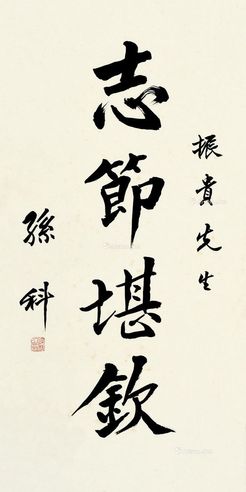 振貴先生
志節堪欽
孫科